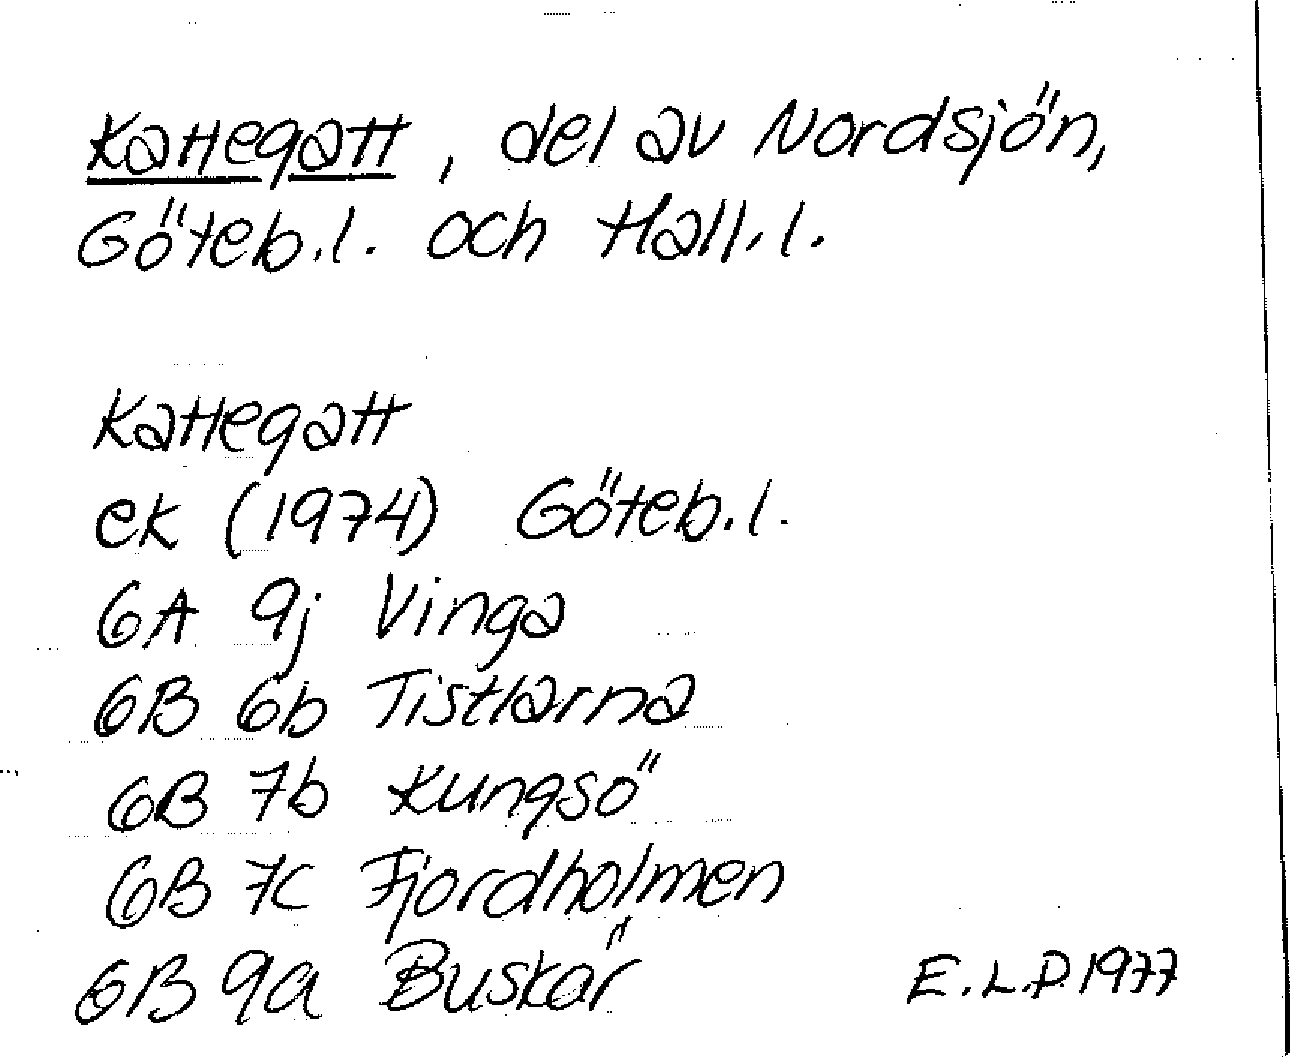 Kattegatt, del av Nordsjön,
Göteb.l. och Hall.l.
Kattegatt
ek (1974) Göteb.l.
6A 9j Vinga
6B 6b Tistlarna
6B 7b Kungsö
6B 7c Fjordholmen
6B 9a Buskär
E.L.P. 1977